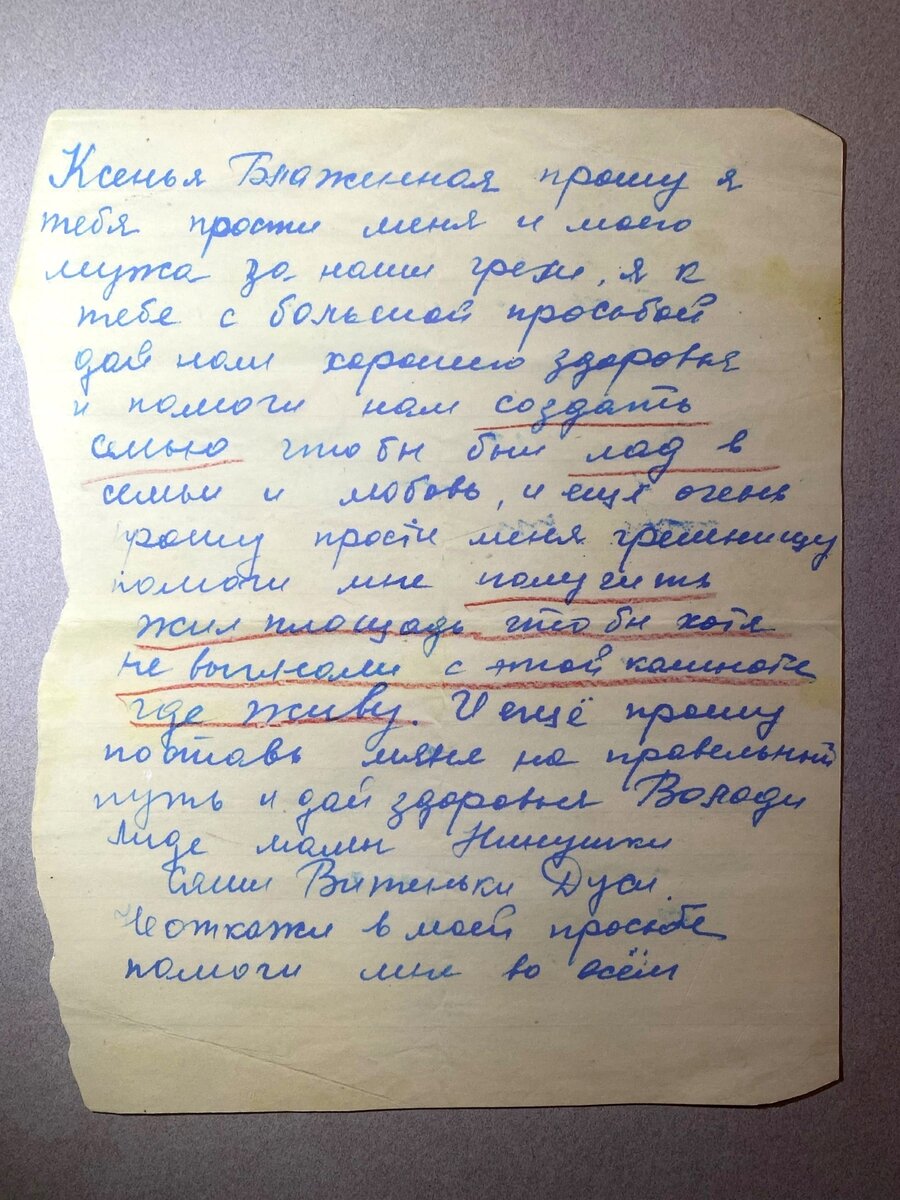 Ксенья Блаженная прошу я
тебя прости меня и моего
мужа за наши грехи, я к
тебе с большой просьбой
дай нам хорошего здоровья
и помоги нам создать
семью чтобы был лад в
семьи и любовь, и ещё очень
прошу прости меня грешницу
помоги мне получить
жил площадь чтобы хотя
не выгнали с этой комноте
где живу. И ещё прошу
поставь мяня на правельный
путь и дай здоровья Володи
Лиде мамы Нинушки
Саши Витеньки Дуси
Не откажи в моей просьбе
помоги мне во всём